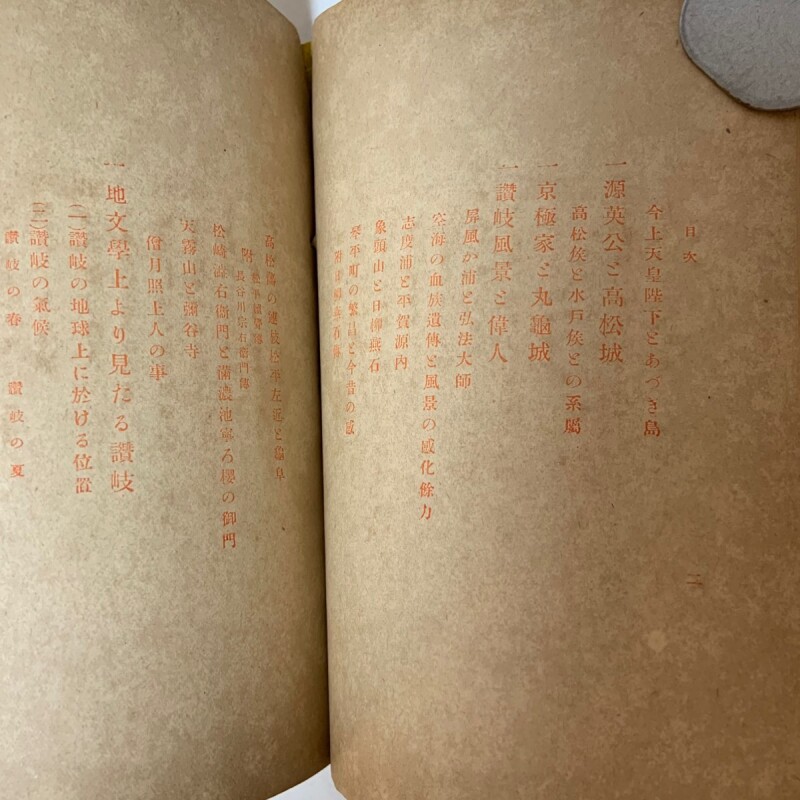 目次
今上天皇陛下とあづき島
一源英公と高松城
高松侯と水戸侯との系屬
一京極家と丸龜城
一讚岐風景と偉人
屏風が浦と弘法大師
空海の血族遺傳と風景の感化餘力
志度浦と平賀源內
象頭山と日柳燕石
琴平町の繁昌と今昔の感
附
二
高松藩の建枝松平左近と
附
長谷川宗右衞門傳
松崎澁右衞門と滿濃池寧ろ櫻の御門
天霧山と彌谷寺
僧月照上人の事
一地文學上より見たる讚岐
(一)讚岐の地球上に於ける位置
(二)讚岐の氣候
讚岐の春 讚岐の夏